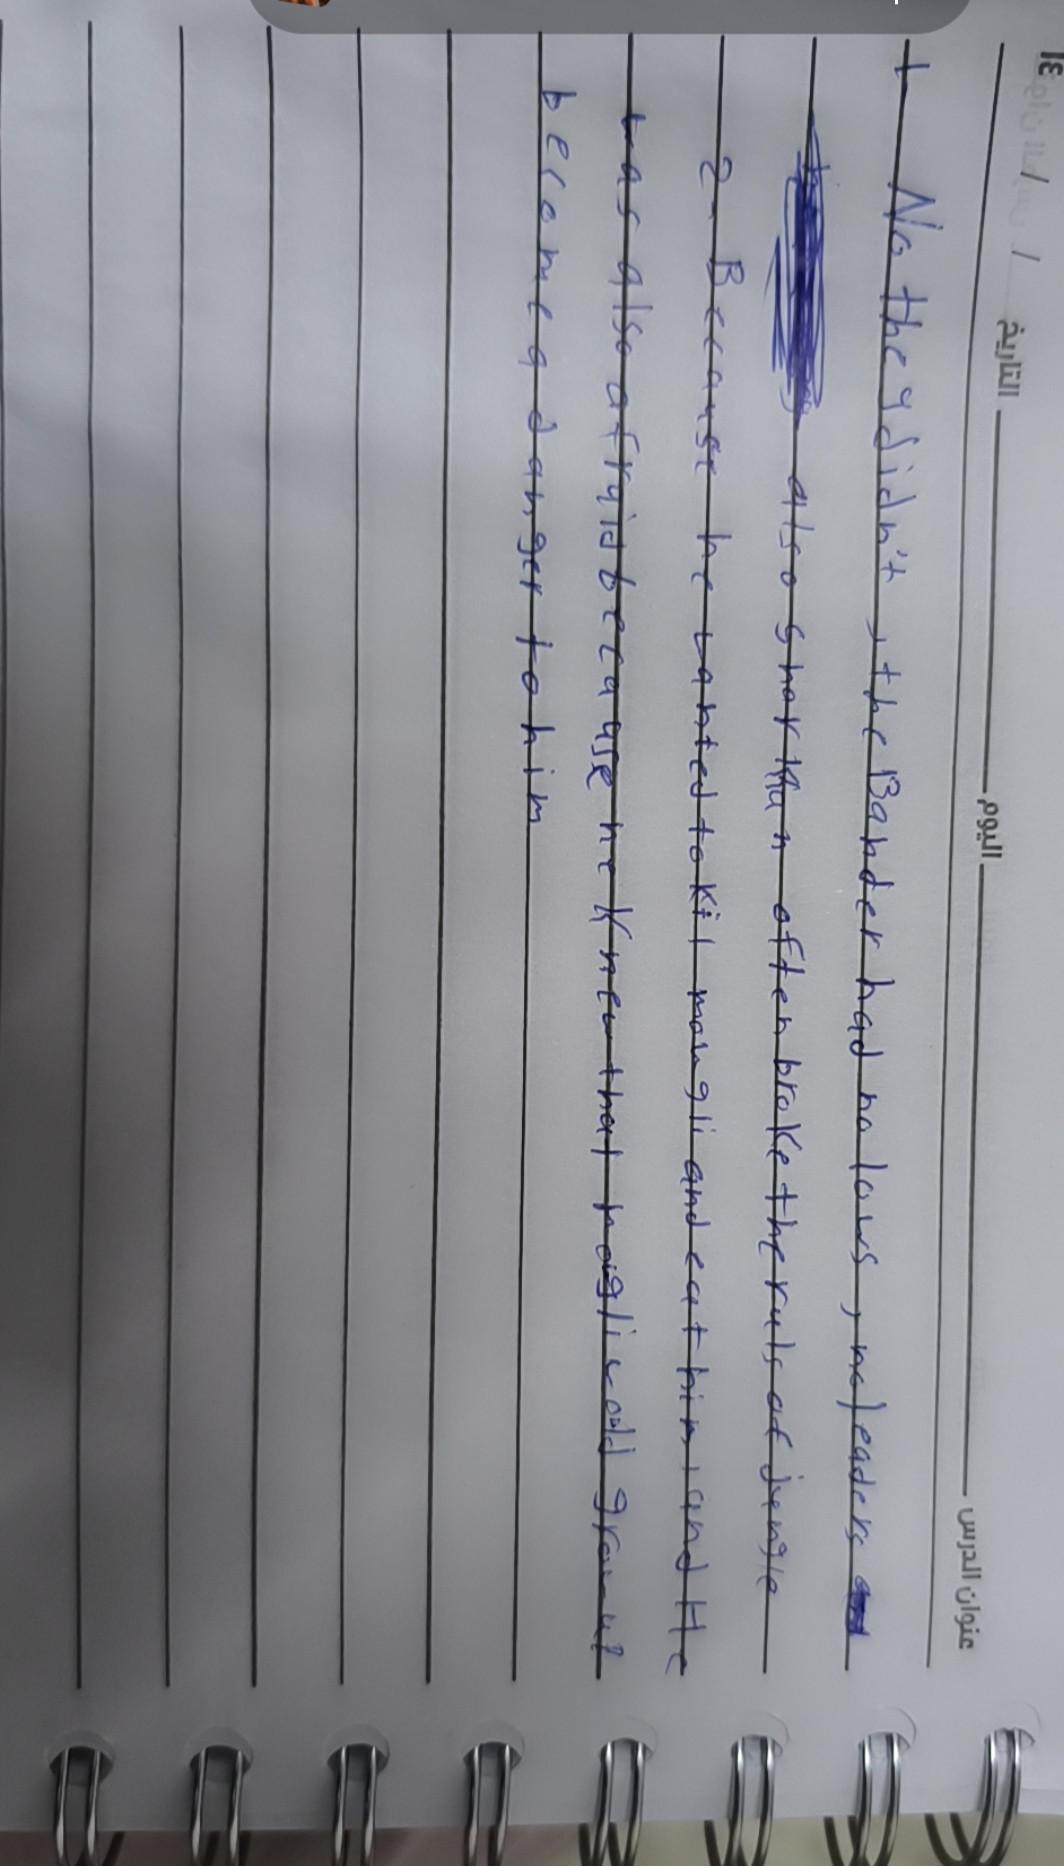 ١٤ / / التاريخ اليوم عنوان الدرس
1- No they didn't , the Bander had no laws , no leaders
also sharkhan often broke the ruls of jungle
2- Because he wanted to kil mowgli and eat him , and He
was also afraid because he knew that mowgli would grow up
become a danger to him